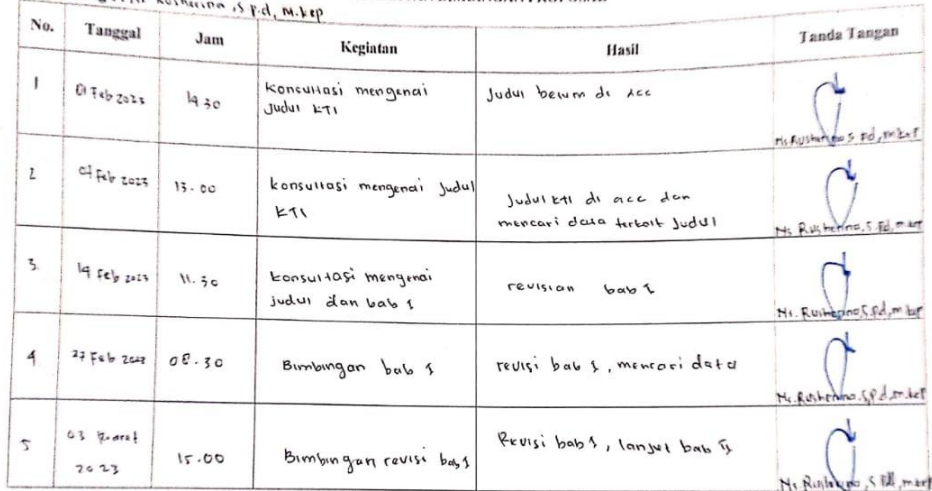 Rusherina, S.Pd, M.kep
No. Tanggal Jam Kegiatan Hasil Tanda Tangan
1 01 Feb 2023 14.30 Konsultasi mengenai Judul belum di acc
Judul KTI
Ns. Rusherina S.Pd, M.kep
2 Feb 2023 13.00 konsultasi mengenai Judul Judul KTI di acc dan
KTI mencari data terkait Judul
Ns. Rusherina, S.Pd, M.kep
3. 14 Feb 2023 11.30 Konsultasi mengenai revisian bab I
judul dan bab 1
Ns. Rusherina S.Pd, M.kep
4 27 Feb 2023 08.30 Bimbingan bab 1 revisi bab 1, mencari data
Ns. Rusherina, S.Pd, M.kep
5 03 Maret Bimbingan revisi bab 1 Revisi bab 1, lanjut bab II
2023 15.00
Ns. Rusherina, S.Pd, M.kep